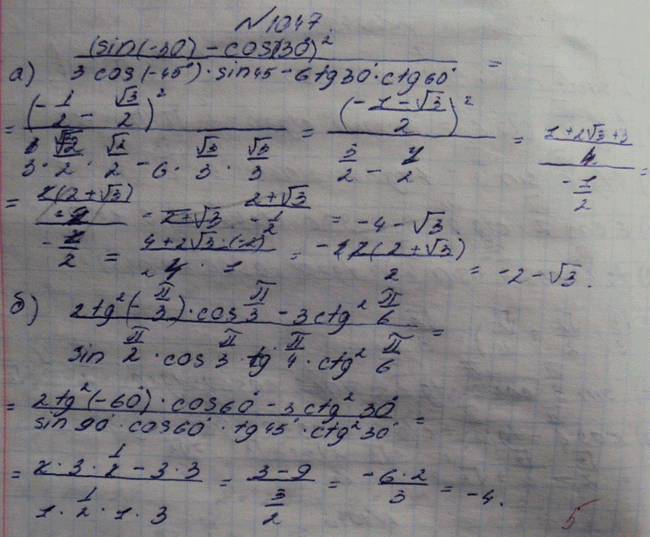 №1047.
а) (sin(-30°) - cos(30°))² / 3cos(-45°)·sin45 - 6tg30°·ctg60° =
= (-1/2 - √3/2)² / 3·√2/2·√2/2 - 6·√3/3·√3/3 = ((-1-√3)/2)² / 3/2 - 4/2 = (1+2√3+3)/4 / -1/2 =
= 2+√3 / -1/2 = -4-√3.
= (4+2√3·(-2))/4·1 = -2(2+√3)/2 = -2-√3.
б) 2tg²(-π/3)·cos π/3 - 3ctg² π/6 / sin π/2·cos π/3·tg π/4·ctg² π/6 =
= 2tg²(-60°)·cos60° - 3ctg²30° / sin90°·cos60°·tg45°·ctg²30° =
= 2·3·1/2 - 3·3 / 1·1/2·1·3 = 3-9 / 3/2 = -6·2/3 = -4.
5